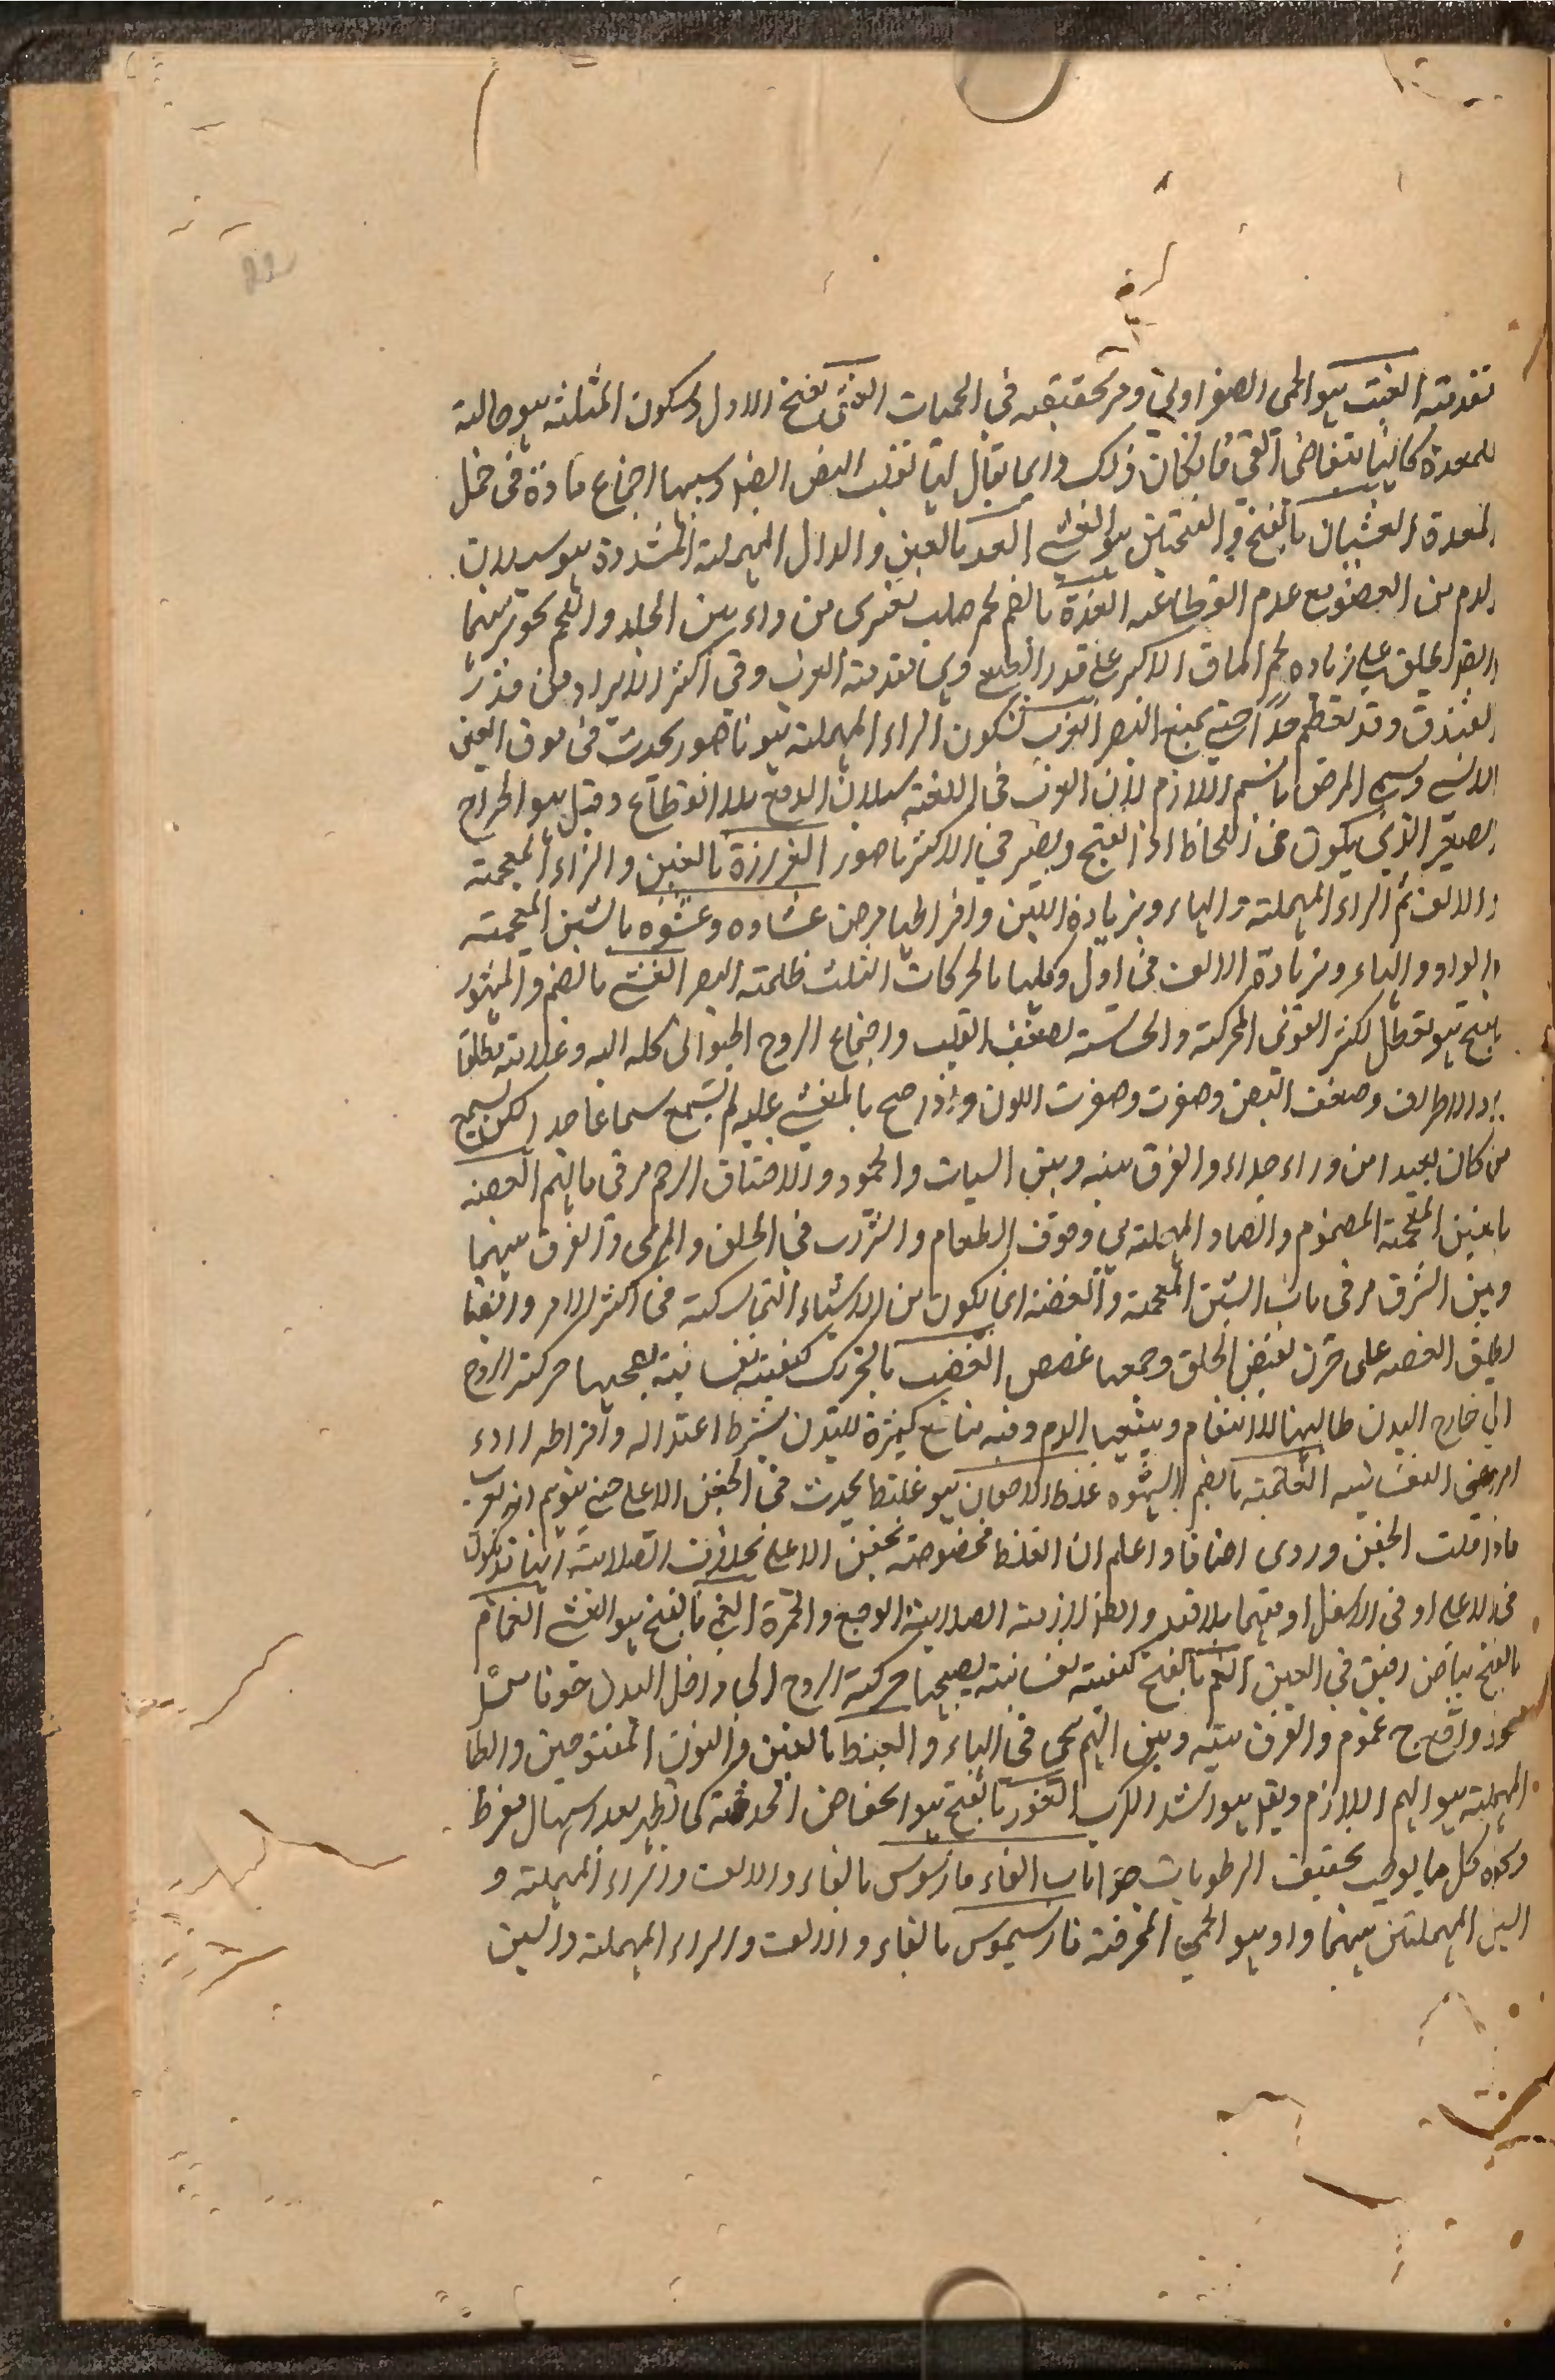 تقدمته الغب هو الحمى الصفراوية ومر تحقيقه في الحميات الغثى بفتح الاول وسكون المثلثه هو حالته
للمعدة كانها يتقاضى القى فانكان ذلك دايما يقال لها تقلب النفس ايضا وسببها اجتماع مادة فى خمل
المعدة الغثيان بالفتح و الفتحتين هو الغشى الغد بالغين والدال المهملة المشددة هو سيلان
الدم من العضو مع عدم انقطاعه الغدة بالضم لحم صلب تعترى من داء بين الجلد واللحم بحوتهما
ايضا يطلق على زياده لحم الماق الاكبر على قدر الطبع وهى تقدمته الغرب وفي اكثر الامر ازيد من قدر
البندق وقد يعظم جدا حتى يمنع البصر الغرب بسكون الراء المهملة هو ناصور يحدث فى موق العين
الانسى وسمى المرض باسم اللازم لان الغرب فى اللغة سيلان الدمع بلا انقطاع وقيل هو الخراج
الصغير الذي يكون فى اللحاظ اذا انفتح ويصير في الاكثر ناصور الغرازة بالغين والزاء المعجمة
والالف ثم الراء المهملة والهاء وبزيادة اللبن وافر الحيا مرض غشاوه وغشوه بالشين المعجمة
والواو والهاء وبزيادة الالف فى اول وكليها بالحركات الثلث ظلمة البصر الغشى بالضم والمشهور
بالفتح هو تعطل اكثر القوى المحركة والحساسة لضعف القلب واجتماع الروح الحيوانى كله اليه وعلامته مطلقا
برد الاطراف وضعف النبض وصفرت اللون واذا صح بالمغشى عليه لم يسمع سماعا جدا لكن يسمع
من كان بعيدا من وراء جداء والفرق بينه وبين السبات والجمود والاختناق الرحم مر فى مالهم الغصه
بالغين المعجمة المضموم والصاد المهملة هى وقوف الطعام والشراب في الحلق والمرى والفرق بينهما
وبين الشرق مر فى باب الشين المعجمة والغصة انما يكون من الاشياء التماسكة فى اكثر الامر وايضا
يطلق الغصه على حزن يقبض الحلق وجمعها غصص الغضب بالتحريك كيفيته نفسانية يصحبها حركة الروح
الى خارج البدن طالبها للانتقام ويتبعها الدم وفيه منافع كثيرة للبدن بشرط اعتداله وافراطه اردء
امراض النفسانيه الغلمة بالضم الشهوه غلظ الاجفان هو غلظ يحدث فى الجفن الاعلى حتى يتوهم انه جرب
فاذا قلبت الجفن وروى اضافا واعلم ان الغلظ مخصوصة بجفن الاعلى بخلاف الصلابة انها قد يكون
فى الاعلى او في الاسفل او فيهما بلا قيد وايضا لازمة الصلابة الوجع والحمرة الغمى بالفتح هو الغشى الغمام
بالفتح بياض رقيق في العين الغم بالفتح كيفيته نفسانية يصحبها حركة الروح الى داخل البدن خوفا من
والجمع غموم والفرق بينه وبين الهم يجى فى الهاء والغنط بالغين والنون المفتوحين والطا
المهملة هو الهم اللازم وقيل هو اشد الكرب الغور بالفتح هو انخفاض الحدقة كما يظهر بعد اسهال مفرط
ونحوه كل ما يوجب تجفيف الرطوبات جدا باب الفاء فارسوس بالفاء والالف والراء المهملة و
السين المهملتين بينهما واو هو الحمى المحرقة فارسيموس بالفاء والالف والراء المهملة والسين